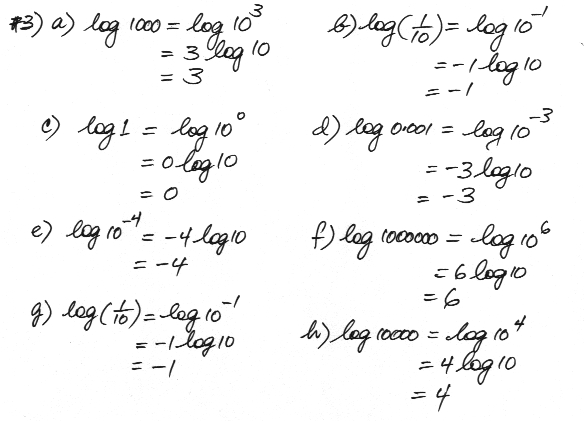 #3) a) log 1000 = log 10³
= 3 log 10
= 3
b) log(1/10) = log 10⁻¹
= -1 log 10
= -1
c) log 1 = log 10⁰
= 0 log 10
= 0
d) log 0.001 = log 10⁻³
= -3 log 10
= -3
e) log 10⁻⁴ = -4 log 10
= -4
f) log 1000000 = log 10⁶
= 6 log 10
= 6
g) log(1/10) = log 10⁻¹
= -1 log 10
= -1
h) log 10000 = log 10⁴
= 4 log 10
= 4